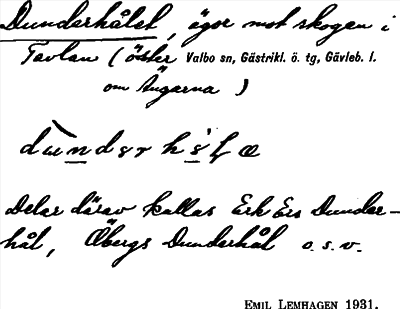 Dunderhålet, ägor mot skogen i
Tavlan (öster Valbo sn, Gästrikl. ö. tg, Gävleb. l.
om Ängarna )
Delar därav kallas Erk Ers Dunder-
hål, Öbergs Dunderhål o.s.v.
EMIL LEMHAGEN 1931.